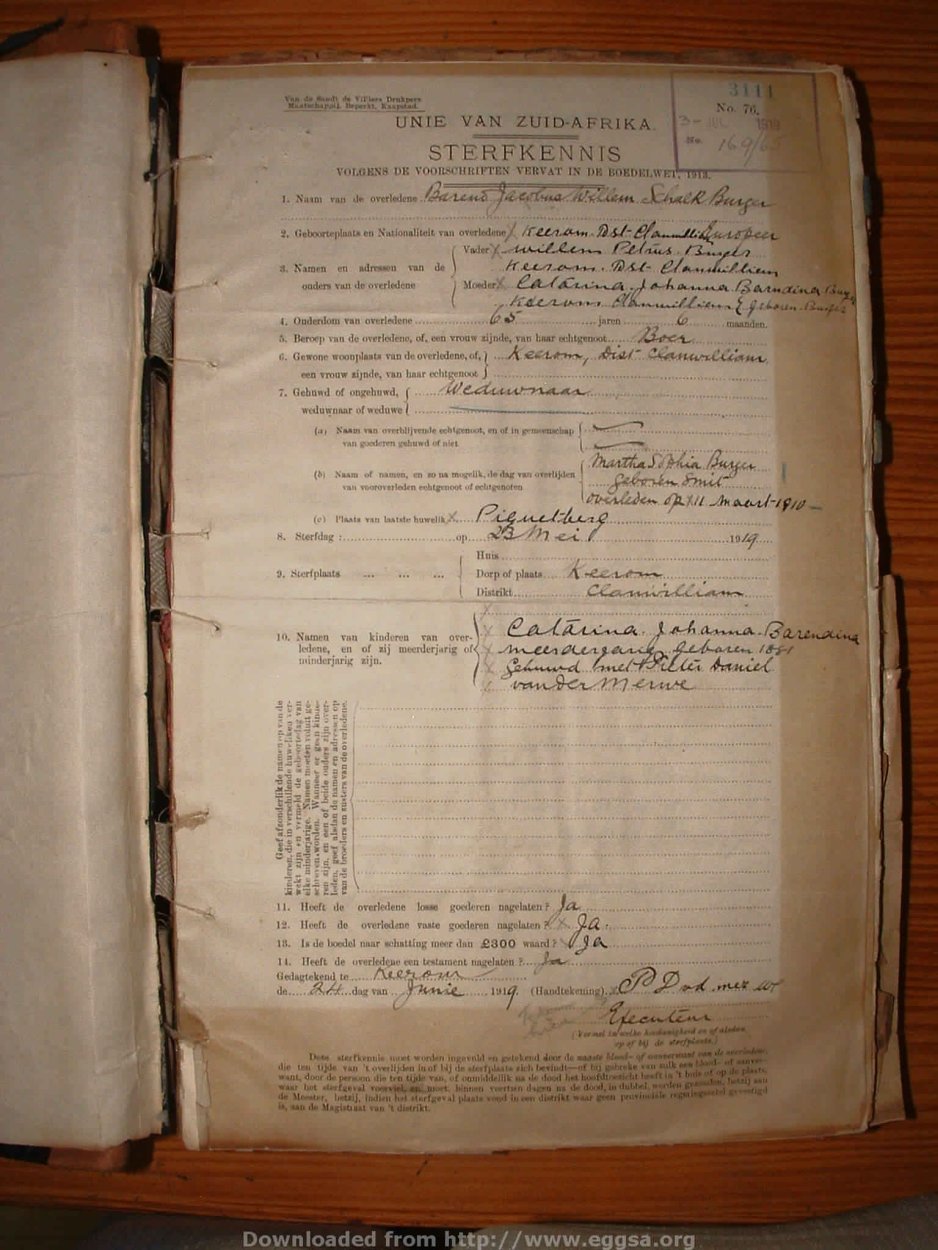 Van de Sandt de Villiers Drukpers
Maatschappij, Beperkt, Kaapstad.
3111
No. 76.
3 - JUL 1919
No. 169/65
UNIE VAN ZUID-AFRIKA.
STERFKENNIS
VOLGENS DE VOORSCHRIFTEN VERVAT IN DE BOEDELWET, 1913.
1. Naam van de overledene Barend Jacobus Willem Schalk Burger
2. Geboorteplaats en Nationaliteit van overledene Keerom Dst Clanwilliam Europeer
3. Namen en adressen van de ouders van de overledene
Vader Willem Petrus Burger
Keerom Dst Clanwilliam
Moeder Catarina Johanna Barndina Burger
Keerom Clanwilliam geboren Burger
4. Ouderdom van overledene 65 jaren 6 maanden.
5. Beroep van de overledene, of, een vrouw zijnde, van haar echtgenoot Boer
6. Gewone woonplaats van de overledene, of, Keerom, Dist Clanwilliam
een vrouw zijnde, van haar echtgenoot
7. Gehuwd of ongehuwd, Weduwnaar
weduwnaar of weduwe
(a) Naam van overblijvende echtgenoot, en of in gemeenschap
van goederen gehuwd of niet
(b) Naam of namen, en zo na mogelik, de dag van overlijden
van vooroverleden echtgenoot of echtgenoten
Martha Sophia Burger
geboren Smit
overleden op 11 Maart 1910
(c) Plaats van laatste huwelik Piquetberg
8. Sterfdag : op 23 Mei 1919
9. Sterfplaats ... ... ...
Huis
Dorp of plaats Keerom
Distrikt Clanwilliam
10. Namen van kinderen van over-
ledene, en of zij meerderjarig of
minderjarig zijn.
Catarina Johanna Barendina
meerderjarig geboren 1881
Gehuwd met Pieter Daniel
van der Merwe
Geef afzonderlik de namen op van de
kinderen, die in verschillende huweliken ver-
wekt zijn en vermeld de geboortedag van
elke minderjarige. Namen moeten voluit ge-
schreven worden. Wanneer er geen kinde-
ren zijn, en een of beide ouders zijn over-
leden, geef alsdan de namen en adressen op
van de broeders en susters van de overledene.
11. Heeft de overledene losse goederen nagelaten ? Ja
12. Heeft de overledene vaste goederen nagelaten ? Ja.
13. Is de boedel naar schatting meer dan £300 waard ? Ja
14. Heeft de overledene een testament nagelaten ? Ja
Gedagtekend te Keerom
de 24 dag van Junie 1919 (Handtekening) P D vd merwe
Executeur
(Vermel in welke hoedanigheid en of alsdan
op of bij de sterfplaats.)
Deze sterfkennis moet worden ingevuld en getekend door de naaste bloed- of aanverwant van de overledene,
die ten tijde van 't overlijden in of bij de sterfplaats zich bevindt—of bij gebreke van zulk een bloed- of aanver-
want, door de persoon die ten tijde van, of onmiddellik na de dood het hoofdtoezicht heeft in 't huis of op de plaats,
waar het sterfgeval voorviel, en moet binnen veertien dagen na de dood, in dubbel, worden gezonden, hetzij aan
de Meester, hetzij, indien het sterfgeval plaats vond in een distrikt waar geen provinciale regeringszetel gevestigd
is, aan de Magistraat van 't distrikt.
Downloaded from http://www.eggsa.org